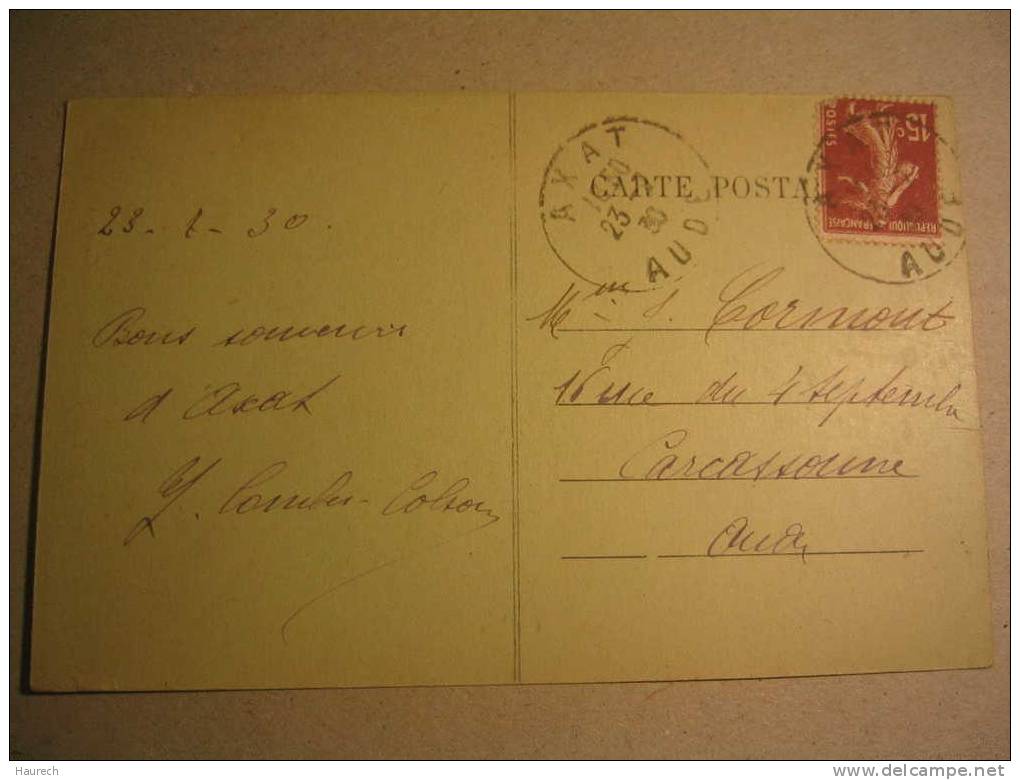 CARTE POSTA
AXAT
10 30
23
30
AUDE
15c
POSTES
REPUBLIQUE FRANÇAISE
AXAT
AUDE
23 - 1 - 30.
Bons souvenirs
d'Axat
Mme S. Cormont
16 rue du 4 septembre
Carcassonne
Aude
Haurech
delcampe.net